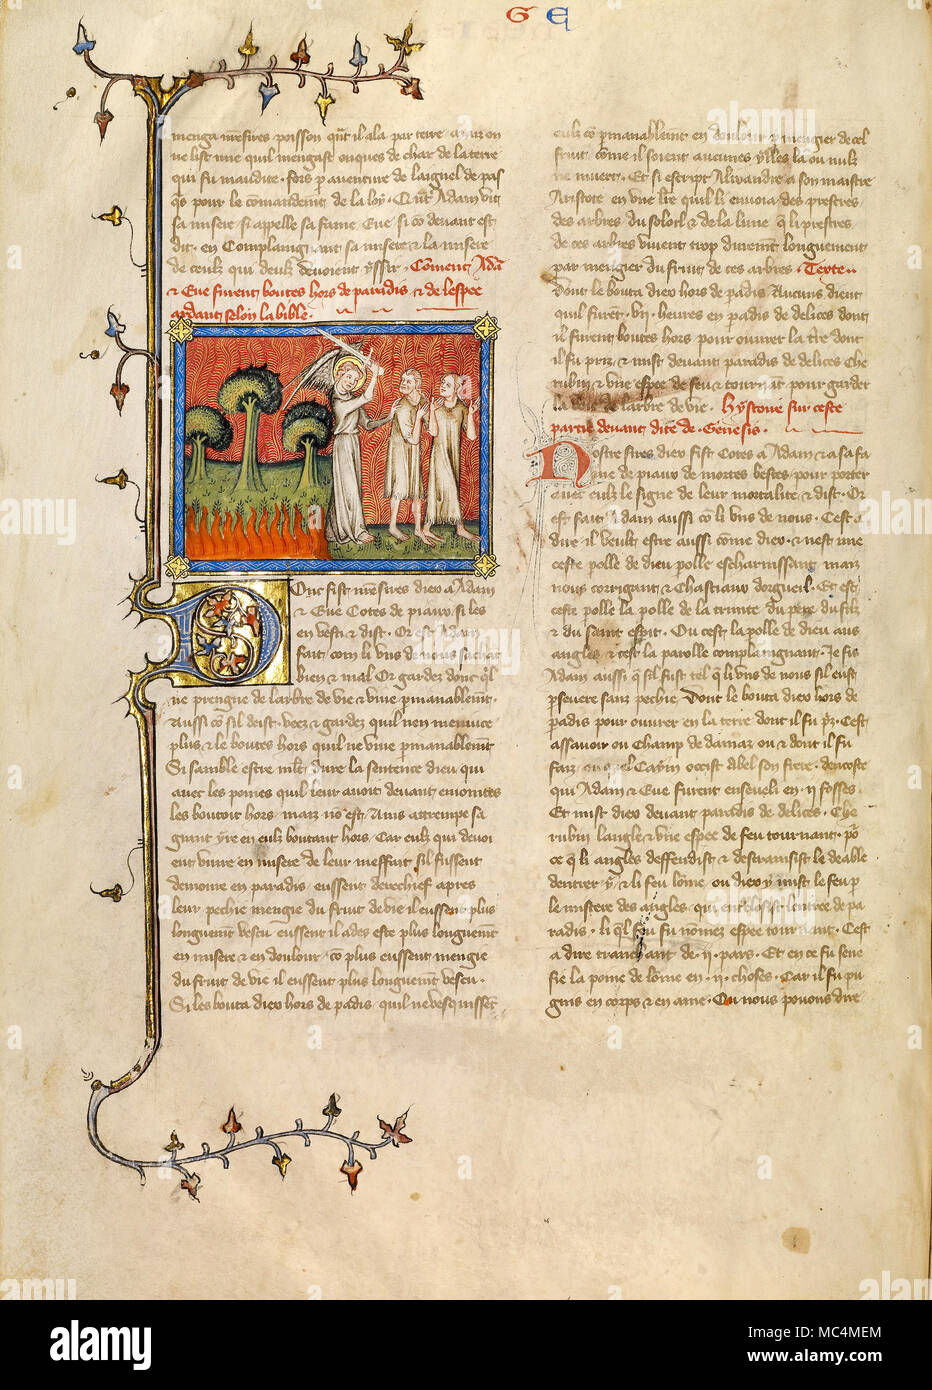 G E
menga messires poisson qnt il ala par terre
ne list mie quil mengast onques de char de la terre
qui fu maudite
pour le comandemt de la loi. Adam vit
sa misere si appelle sa fame Eue si co deuant est
dit. en Complaingnant sa misere & la misere
de ceulz qui deulz deuoient yssir. Coment Adam
& Eue furent boutes hors de paradis & de lespee
ardant selon la bible.
Donc fist messires dieu a Adam
& Eue Cotes de piaux. si les
en vesti. & dist. Or est Adam
fait com li vns de nous sachat
bien & mal. Or gardez donc ql
ne prengne de larbre de vie & viue pmanablemt.
Aussi com sil deist. veez & gardez quil nen meniuce
plus. & le boutes hors quil ne viue pmanablemt
Si samble estre mlt dure la sentence dieu qui
auec les poines quil leur auoit deuant eniointes
les boutoit hors. maiz no est. Ains attrempe sa
grant yre en eulz boutant hors. Car eulz qui deuoi
ent viure en misere de leur meffait sil fussent
demoure en paradis. eussent derechief apres
leur pechie mengie du fruit de vie il eussent plus
longuemt vescu. eussent il ades este plus longuemt
en misere & en doulour. co plus eussent mengie
du fruit de vie il eussent plus longuemt vescu.
Si les bouta dieu hors de padis quil ne vesquissent
eulz co pmanablemt en doulour & mengier de cel
fruit. come il soient aucunes ylles la ou nulz
ne muert. Et si escript Alixandre a son maistre
Aristote en vne lre quil li enuoia des prestres
des arbres du soloil & de la lune q li prestres
de ces arbres viuent trop durement longuement
par mengier du fruit de ces arbres. Texte.
Dont le bouta dieu hors de padis Aucuns dient
quil furet. vij. heures en paradis de delices dont
il furent boutes hors pour ouurer la tre dont
il fu priz. & mist deuant paradis de delices Che
rubin & vne espee de feu & tournat pour garder
la voie de larbre de vie. hystoire sur ceste
partie deuant dite de Genesis.
Nostre sires dieu fist Cotes a Adam & a sa fa
me de piaux de mortes bestes. pour porter
auec eulz le signe de leur mortalite. & dist. Or
est fait Adam aussi co li vns de nous. Cest a
dire il veult estre aussi come dieu. & nest une
ceste polle de dieu polle escharnissant maiz
nous corrigant & Chastiant dorgueil. Et est
ceste polle la polle de la trinite du pere du filz
& du saint espit. Ou cest la polle de dieu aus
angles. & est la parolle complaingnant. Je fis
Adam aussi q sil fust tel q li vns de nous sil eust
pseuere sanz pechie. Dont le bouta dieu hors de
padis pour ouurer en la terre dont il fu prz. Cest
assauoir ou Champ de damaz ou & dont il fu
faiz. ou quel Cayin occist abel son frere. dencoste
qui Adam & Eue furent enseueli en .ij. fosses.
Et mist dieu deuant paradis de delices. Che
rubin langle & vne espee de feu tournant. po
ce q li angles deffendist & destrainsist le deable
dentrer y. & li feu lome. ou dieu y mist le feu p
le mistere des angles. qui enclosist lentree de pa
radis. li ql feu fu nomez espee tournant. Cest
a dire tranchant de .ij. pars. Et en ce fu sene
fie la poine de lome en .ij. choses. Car il fu pu
gnis en corps & en ame. Ou nous poons dire
alamy
alamy
Image ID: MC4MEM
www.alamy.com